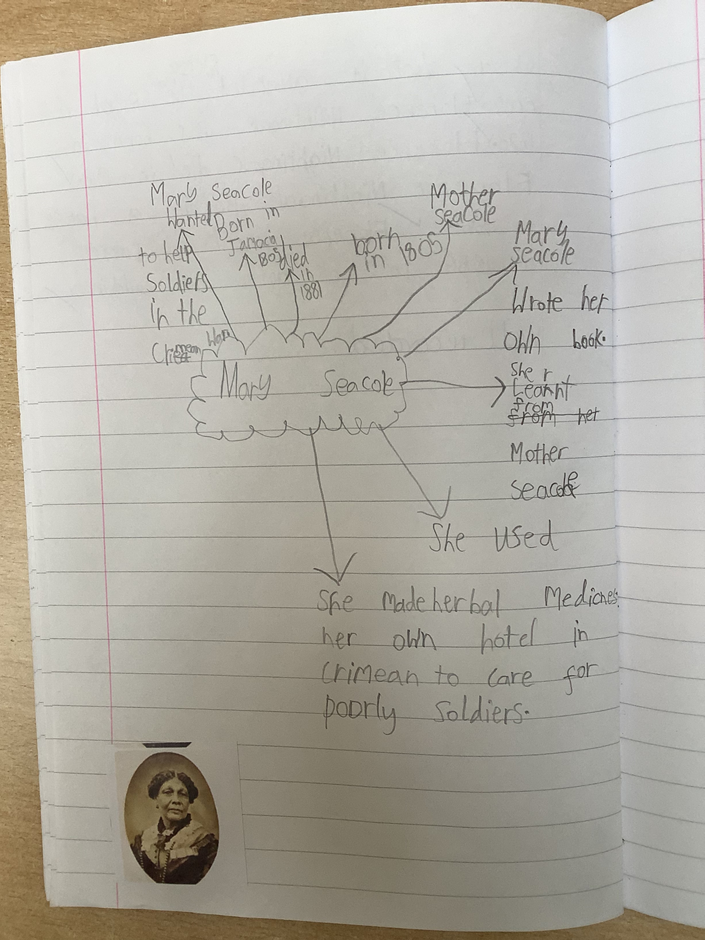 Mary Seacole
Wanted
to help
Soldiers
in the
Crimean War
Born in
Jamaica
1805
died
in
1881
born
in 1805
Mother
Seacole
Mary
Seacole
Wrote her
own book.
She
Learnt
from
from her
Mother
Seacole
Mary Seacole
She used
She made herbal Medicines.
her own hotel in
Crimean to care for
poorly Soldiers.